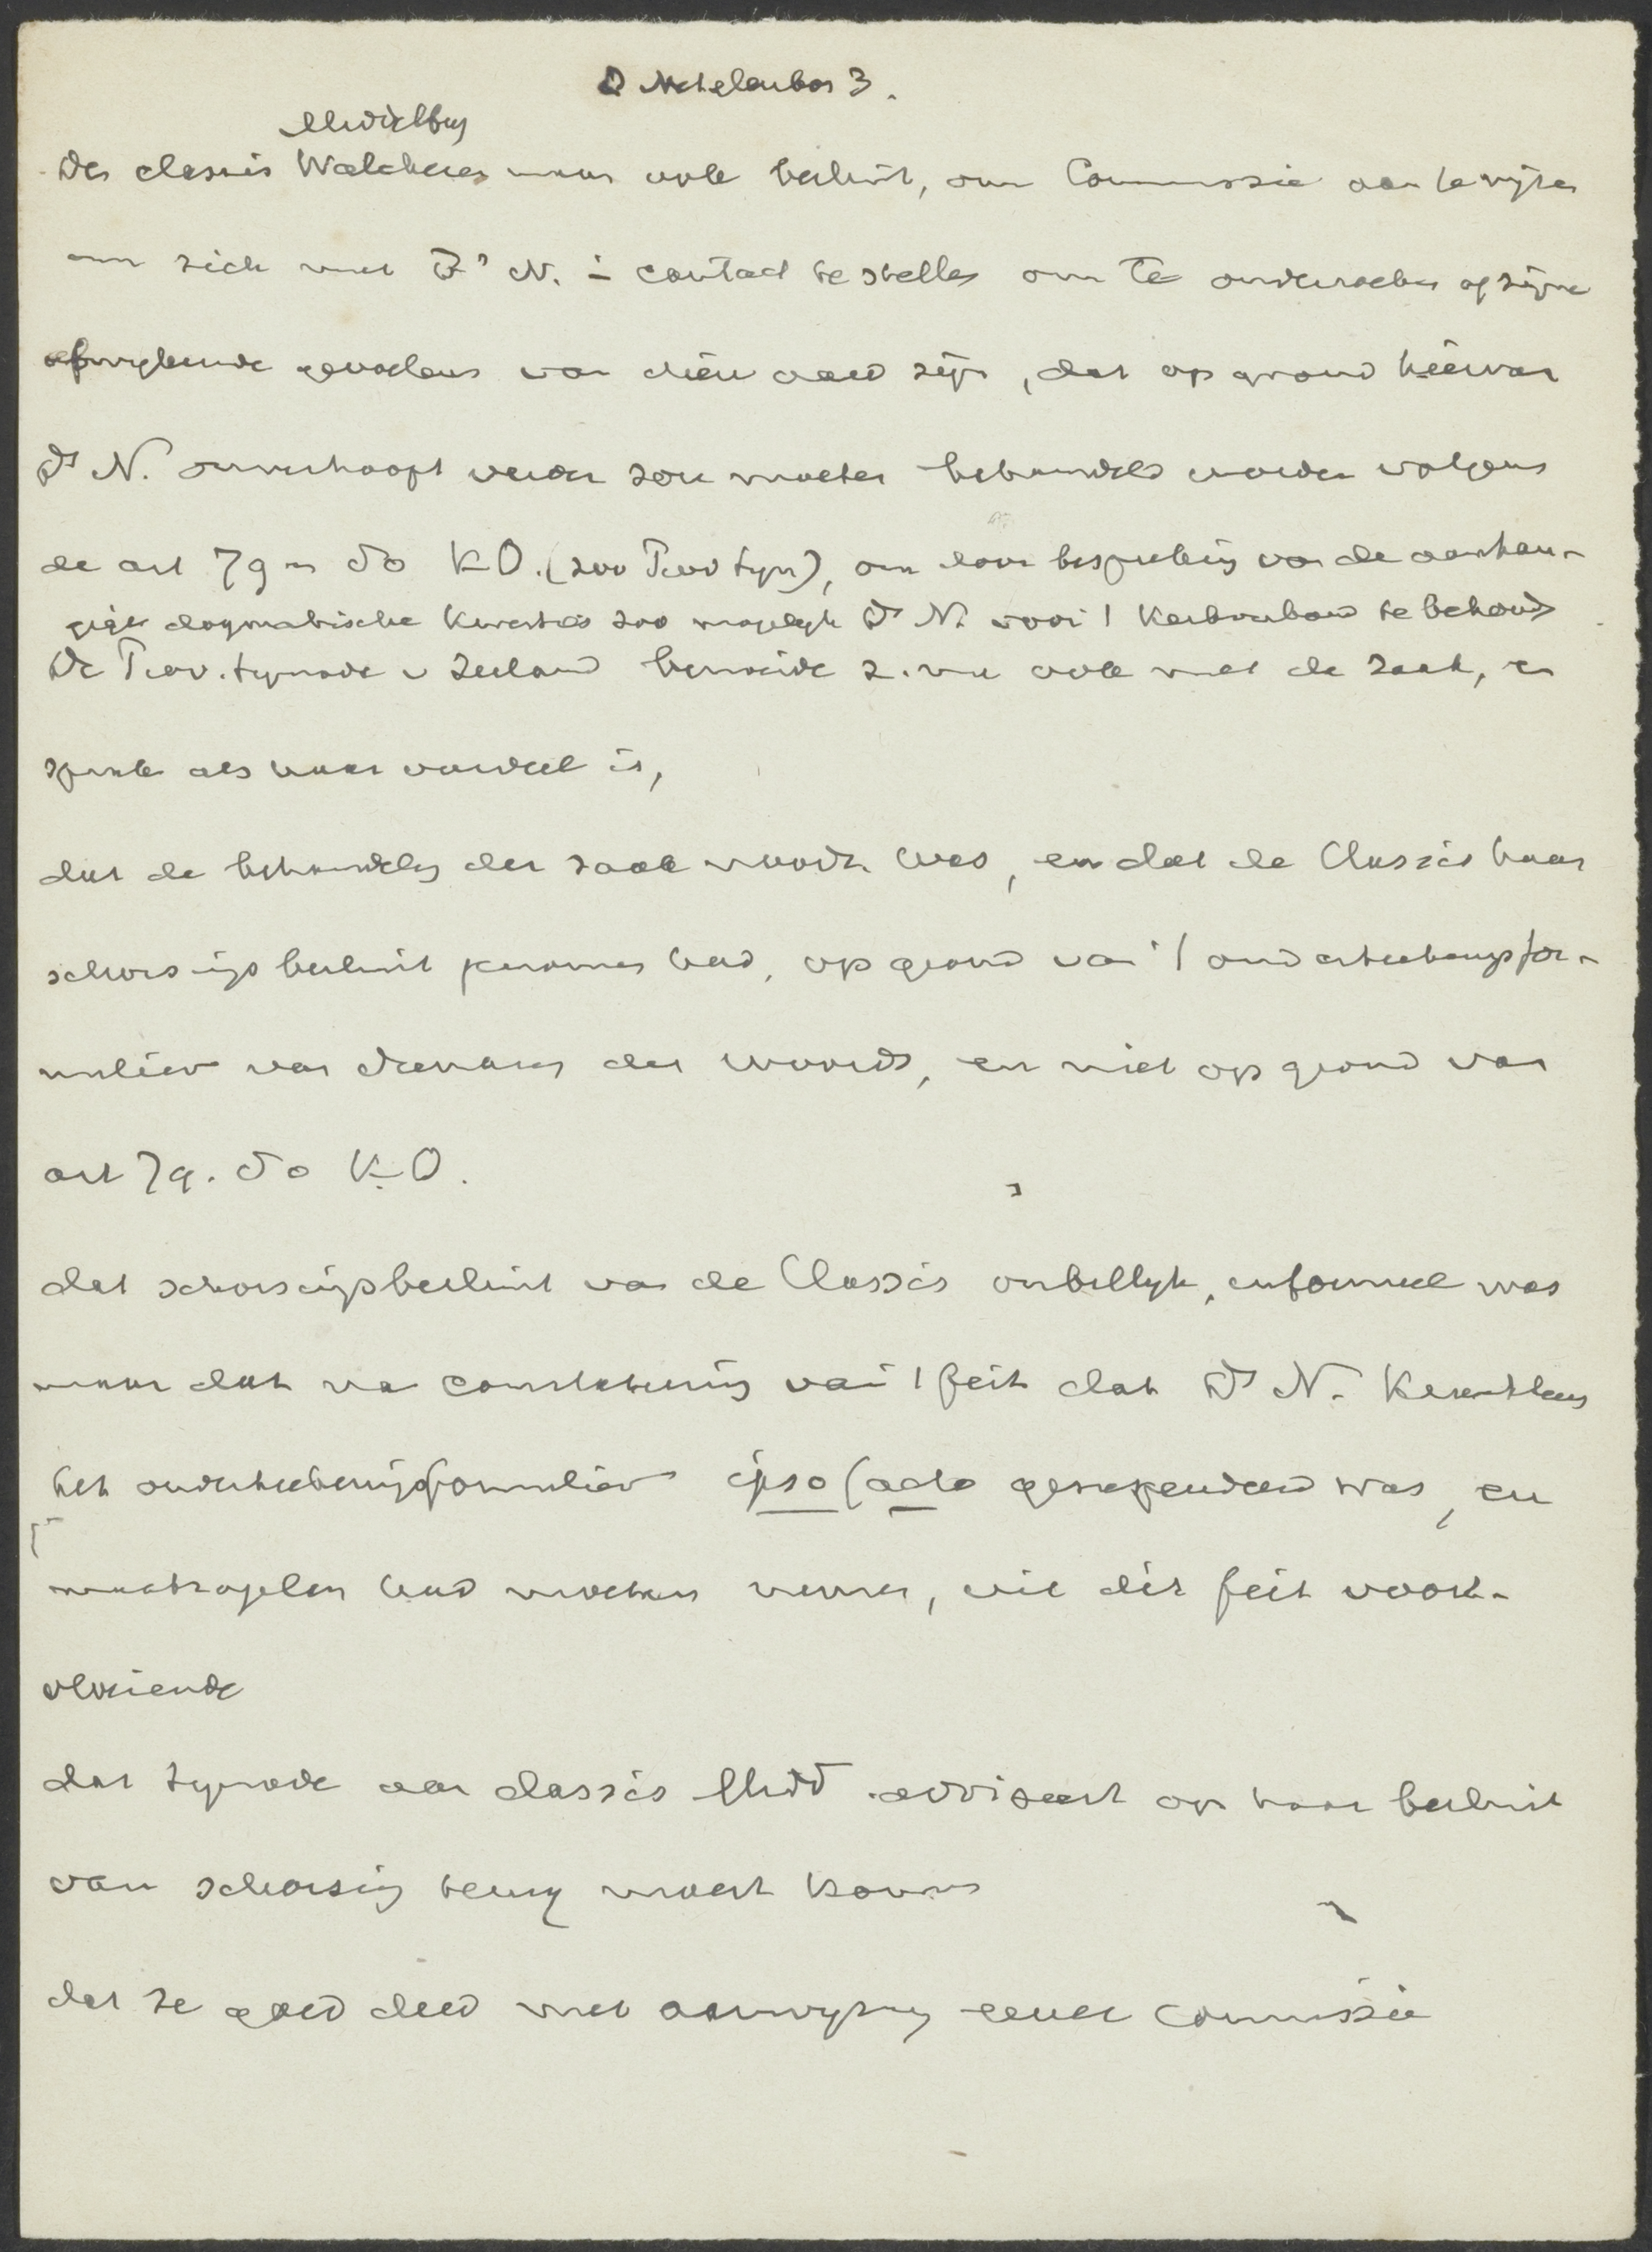 D Netelenbos 3.
Middelbg
De classis Walcheren nam ook besluit, om Commissie aan te wijzen
om zich met Ds N. in contact te stellen om te onderzoeken of zijne
afwijkende gevoelens van dien aard zijn, dat op grond hiervan
Ds N. onverhoopt verder zou moeten behandeld worden volgens
de art 79 en 80 K.O. (zoo Prov Syn), om door bespreking van de aanhan-
gige dogmatische kwesties zoo mogelijk Ds N. voor 't Kerkverband te behouden
De Prov. Synode v Zeeland bemoeide z. nu ook met de zaak, en
sprak als haar oordeel is,
dat de behandeling der zaak noodig was, en dat de Classis haar
schorsingsbesluit genomen had, op grond van 't onderteekeningsfor-
mulier van dienaren des woords, en niet op grond van
art 79. 80 K.O.
dat schorsingsbesluit van de Classis onbillijk, informeel was
maar dat na constateering van 't feit dat Ds N. krachtens
het onderteekeningsformulier ipso facto gesuspendeerd was, en
maatregelen had moeten nemen, uit dit feit voort-
vloeiende
dat Synode aan classis Midd adviseert op haar besluit
van schorsing terug moest komen
dat ze goed deed met aanwijzing eener Commissie